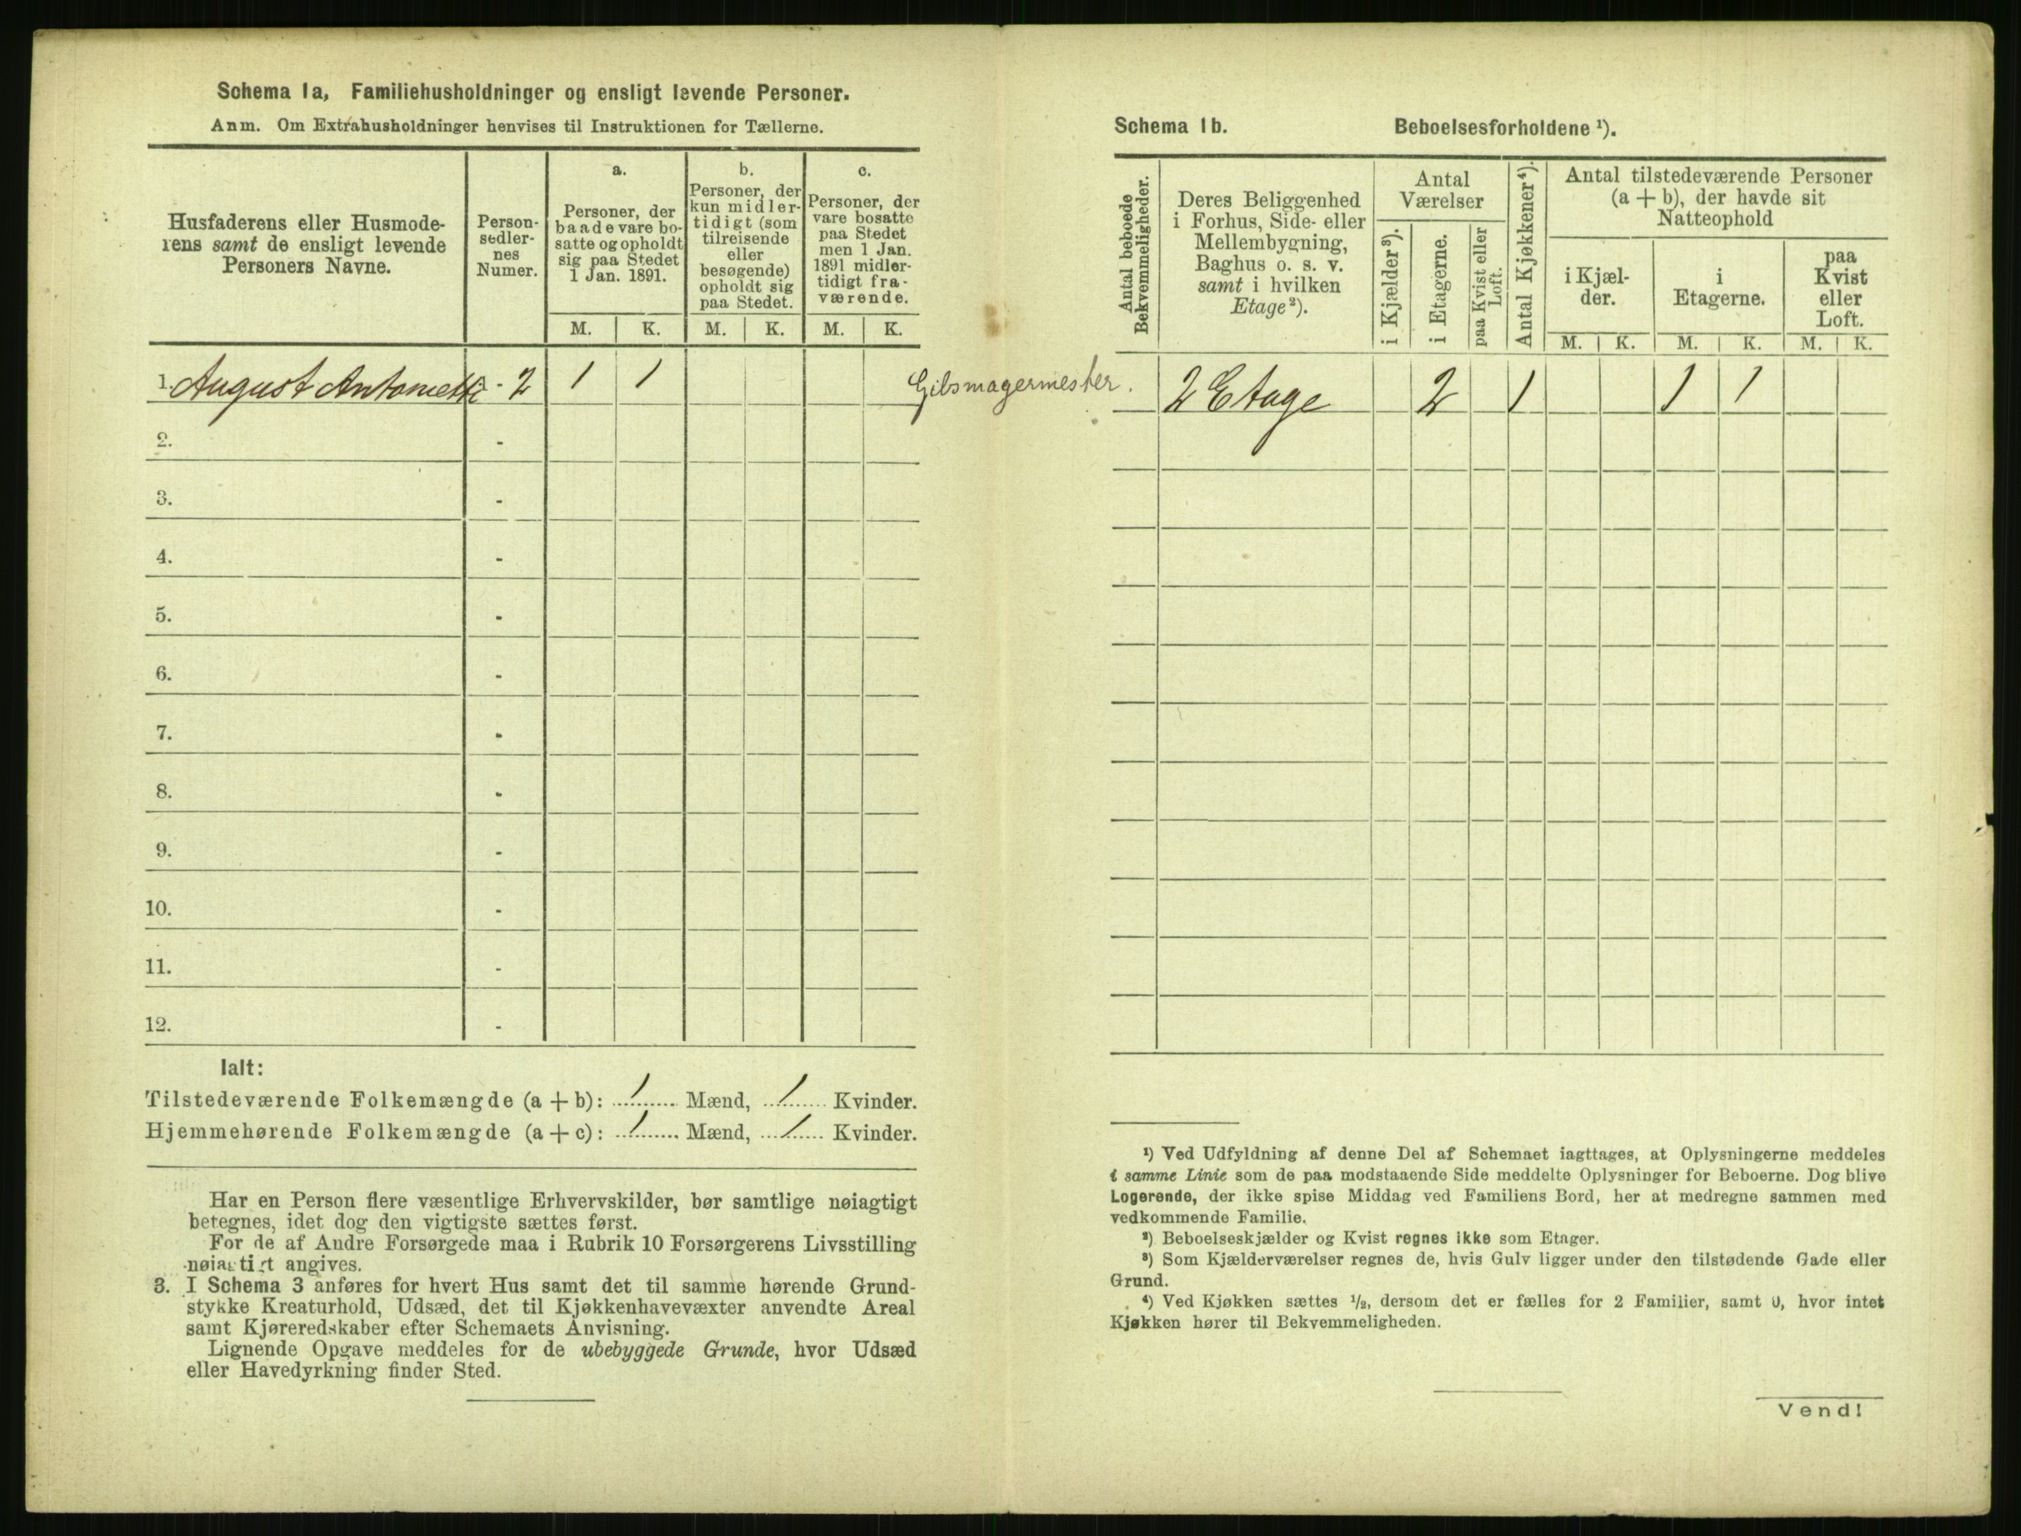 Schema 1a, Familiehusholdninger og ensligt levende Personer.
Anm. Om Extrahusholdninger henvises til Instruktionen for Tællerne.
Husfaderens eller Husmode-
rens samt de ensligt levende
Personers Navne.
Person-
sedler-
nes
Numer.
a.
Personer, der
baade vare bo-
satte og opholdt
sig paa Stedet
1 Jan. 1891.
b.
Personer, der
kun midler-
tidigt (som
tilreisende
eller
besøgende)
opholdt sig
paa Stedet.
c.
Personer, der
vare bosatte
paa Stedet
men 1 Jan.
1891 midler-
tidigt fra-
værende.
M. K. M. K. M. K.
1. August Antonietti - 2 1 1 Gibsmagermester.
2. -
3. -
4. -
5. -
6. -
7. -
8. -
9. -
10. -
11. -
12. -
Ialt:
Tilstedeværende Folkemængde (a + b): 1 Mænd, 1 Kvinder.
Hjemmehørende Folkemængde (a + c): 1 Mænd, 1 Kvinder.
Har en Person flere væsentlige Erhvervskilder, bør samtlige nøiagtigt
betegnes, idet dog den vigtigste sættes først.
For de af Andre Forsørgede maa i Rubrik 10 Forsørgerens Livsstilling
nøiagtigt angives.
3. I Schema 3 anføres for hvert Hus samt det til samme hørende Grund-
stykke Kreaturhold, Udsæd, det til Kjøkkenhavevæxter anvendte Areal
samt Kjøreredskaber efter Schemaets Anvisning.
Lignende Opgave meddeles for de ubebyggede Grunde, hvor Udsæd
eller Havedyrkning finder Sted.
Schema 1b. Beboelsesforholdene ¹).
Antal beboede
Bekvemmeligheder.
Deres Beliggenhed
i Forhus, Side- eller
Mellembygning,
Baghus o. s. v.
samt i hvilken
Etage²).
Antal
Værelser
i Kjælder³).
i Etagerne.
paa Kvist eller
Loft.
Antal Kjøkkener⁴).
Antal tilstedeværende Personer
(a + b), der havde sit
Natteophold
i Kjæl-
der.
i
Etagerne.
paa
Kvist
eller
Loft.
M. K. M. K. M. K.
2 Etage 2 1 1 1
¹) Ved Udfyldning af denne Del af Schemaet iagttages, at Oplysningerne meddeles
i samme Linie som de paa modstaaende Side meddelte Oplysninger for Beboerne. Dog blive
Logerende, der ikke spise Middag ved Familiens Bord, her at medregne sammen med
vedkommende Familie.
²) Beboelseskjælder og Kvist regnes ikke som Etager.
³) Som Kjælderværelser regnes de, hvis Gulv ligger under den tilstødende Gade eller
Grund.
⁴) Ved Kjøkken sættes ½, dersom det er fælles for 2 Familier, samt 0, hvor intet
Kjøkken hører til Bekvemmeligheden.
Vend!